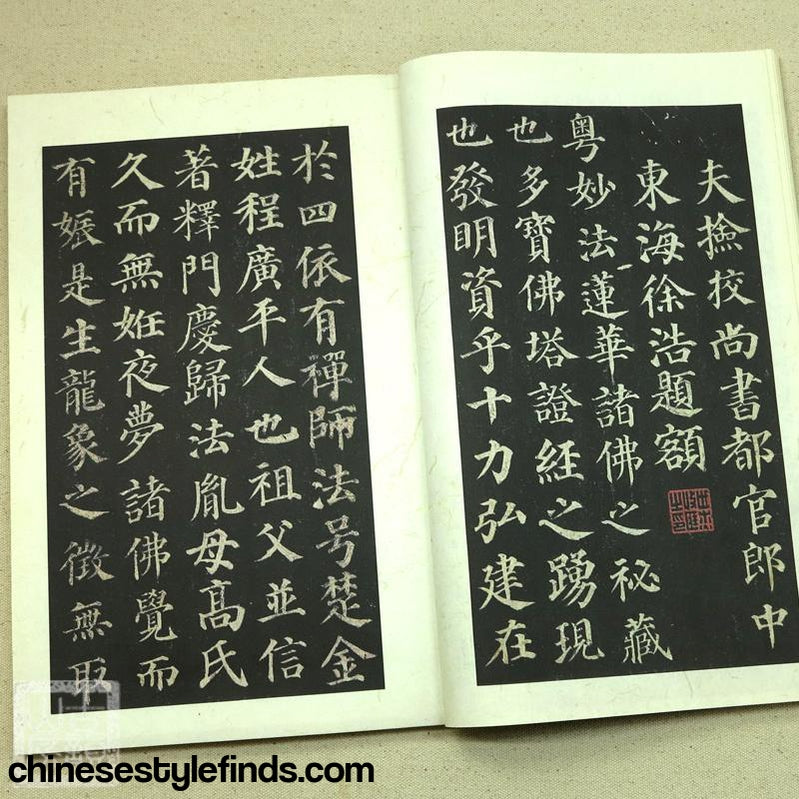 夫撿挍尚書都官郎中
東海徐浩題額
粤妙法蓮華諸佛之祕藏
也多寶佛塔證經之踴現
也發明資乎十力弘建在
於四依有禪師法号楚金
姓程廣平人也祖父並信
著釋門慶歸法胤母高氏
久而無姙夜夢諸佛覺而
有娠是生龍象之徵無取
chinesestylefinds.com